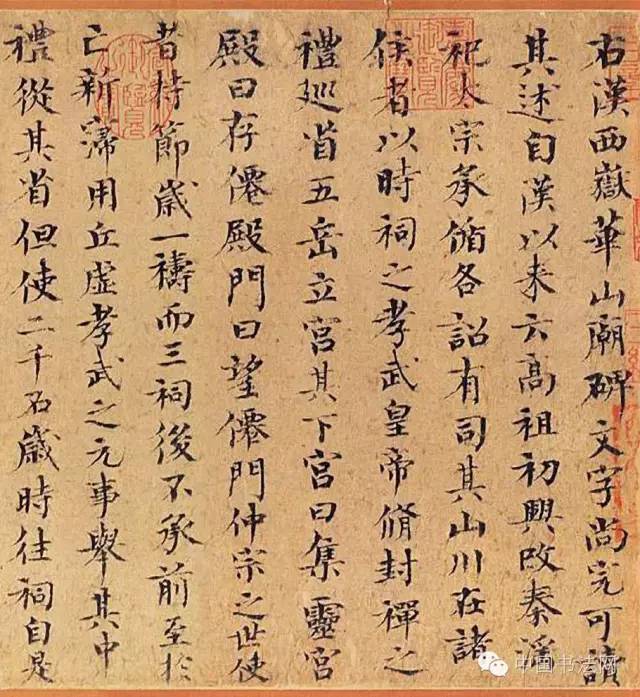 右漢西嶽華山廟碑文字尚完可讀
其述自漢以来云高祖初興改秦淫
祀太宗承循各詔有司其山川在諸
侯者以時祠之孝武皇帝脩封禪之
禮巡省五岳立宮其下宮曰集靈宮
殿曰存僊殿門曰望僊門仲宗之世使
者持節歲一禱而三祠後不承前至於
亡新寖用丘虛孝武之元事舉其中
禮從其省但使二千石歲時往祠自是
中国书法网